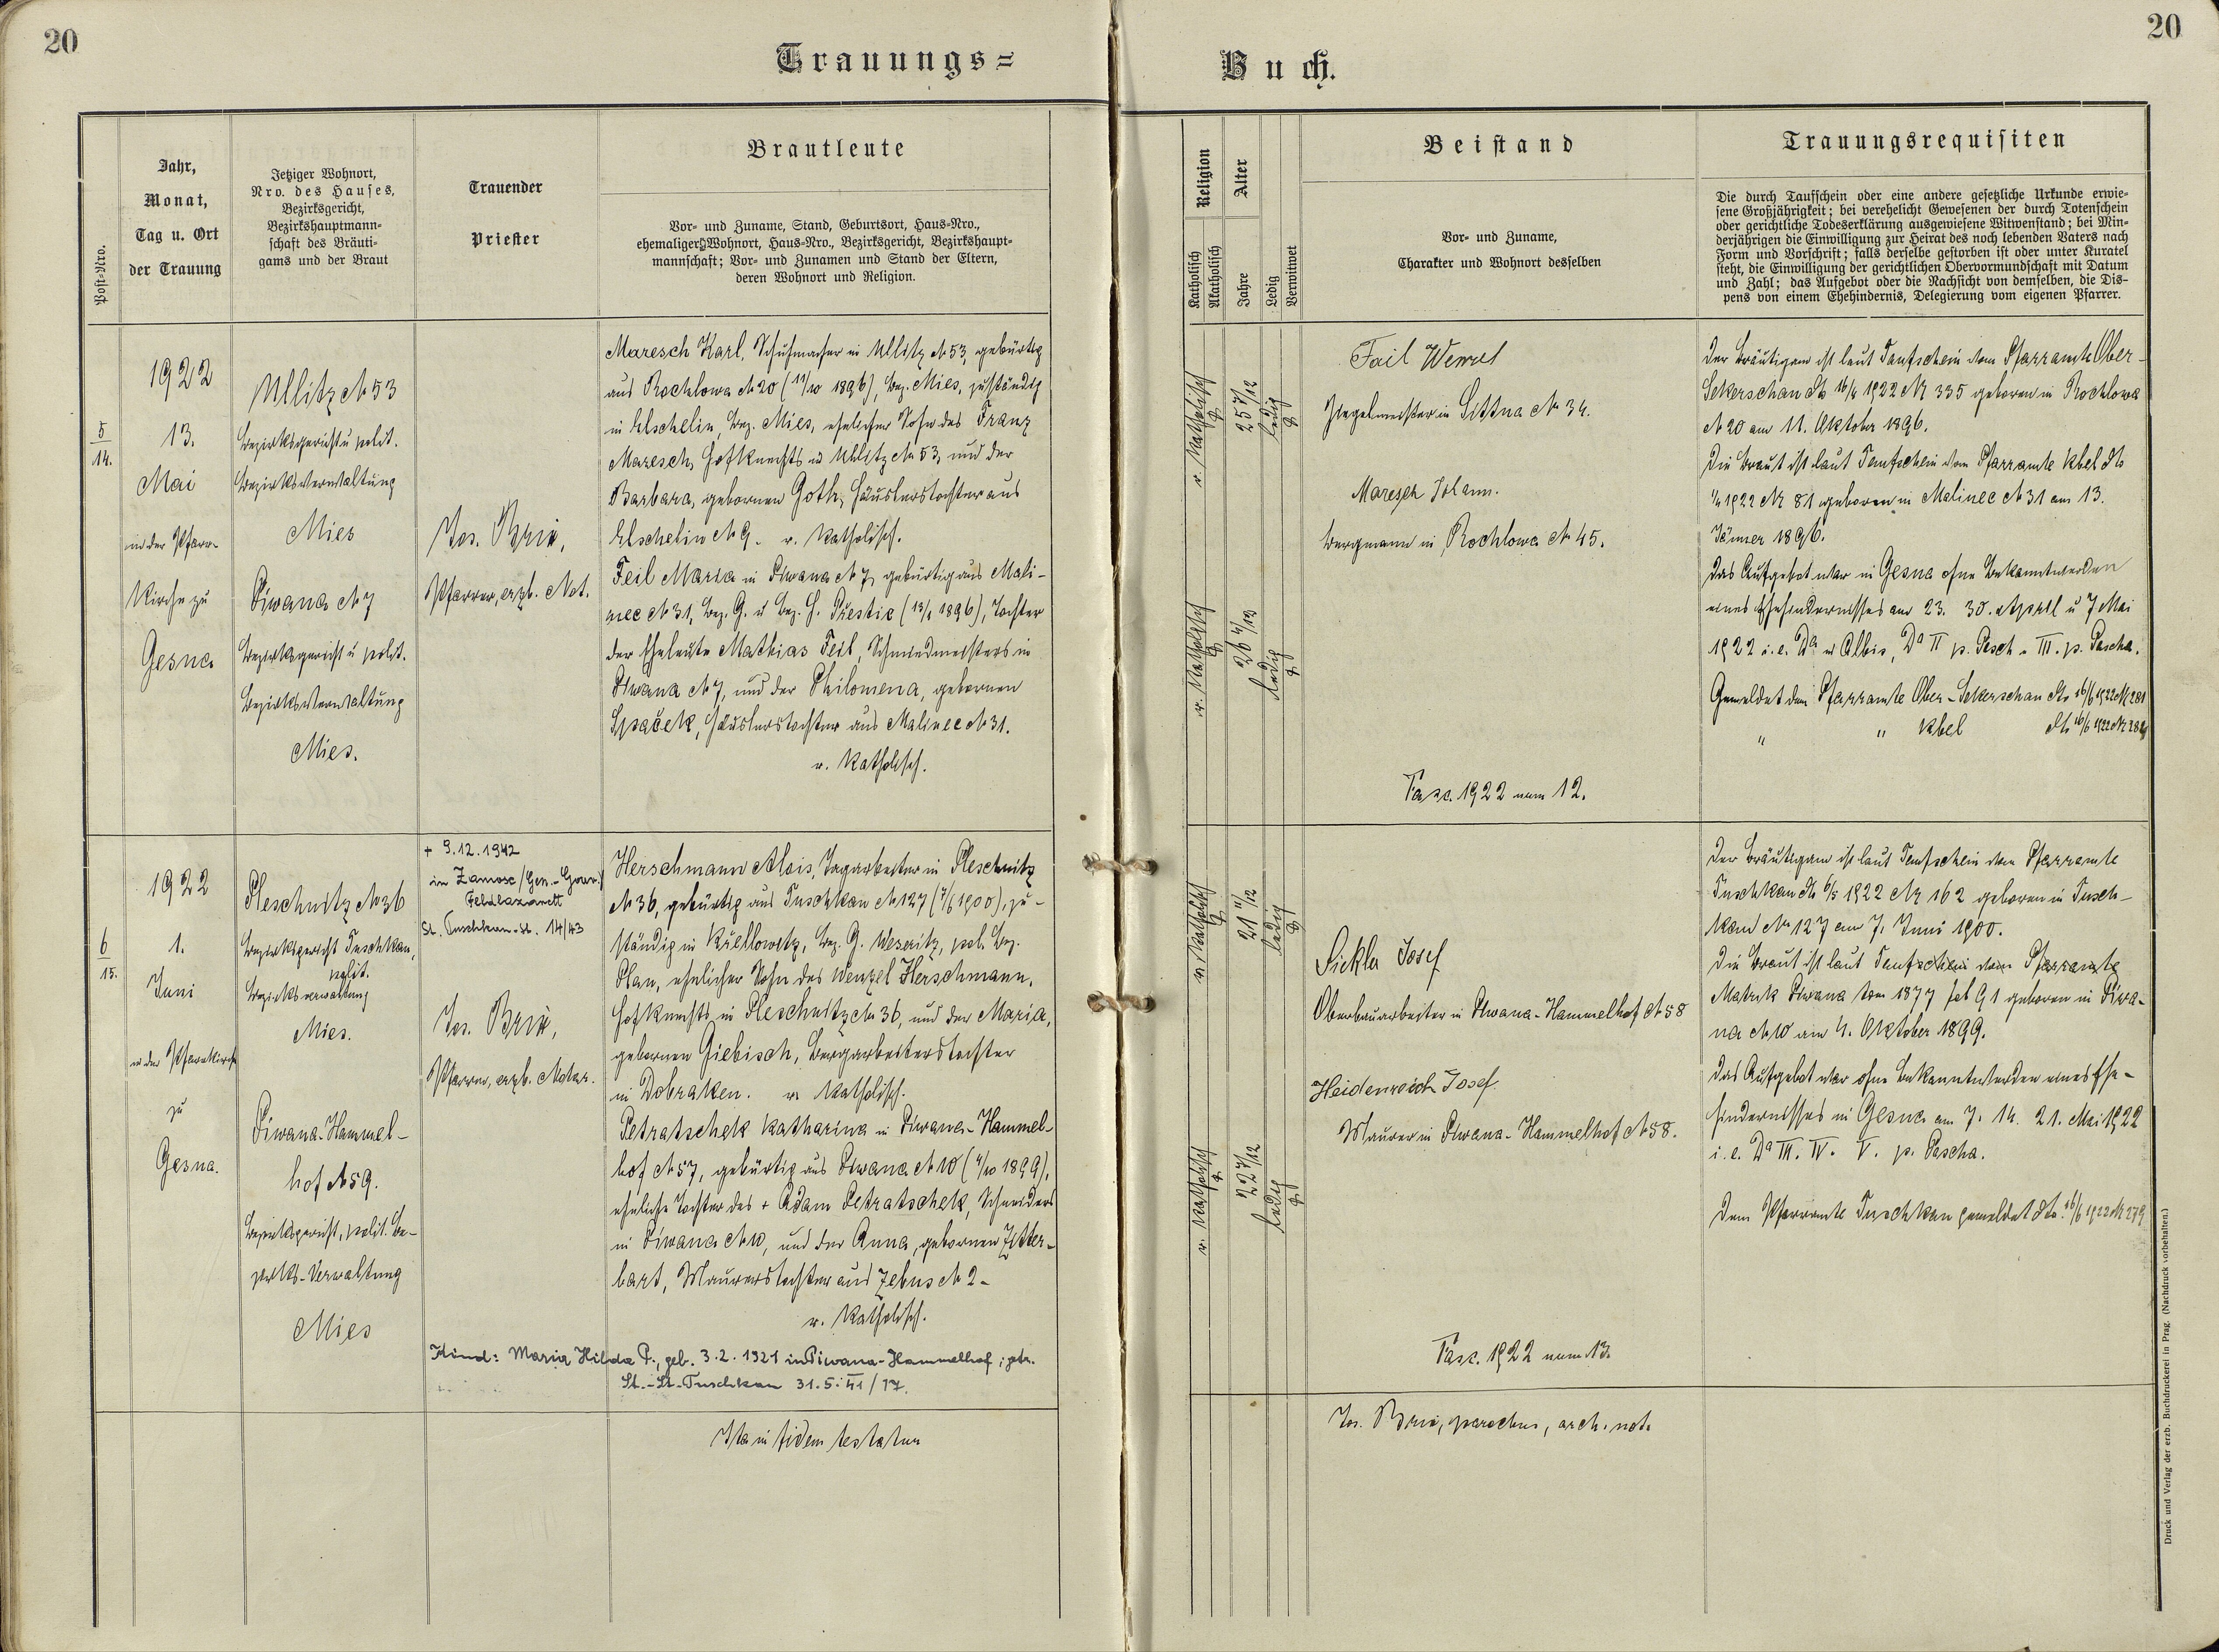 20
20
Trauungs=
Buch.
Post-Nro.
Jahr,
Monat,
Tag u. Ort
der Trauung
Jetziger Wohnort,
Nro. des Hauses,
Bezirksgericht,
Bezirkshauptmann-
schaft des Bräuti-
gams und der Braut
Trauender
Priester
Brautleute
Vor- und Zuname, Stand, Geburtsort, Haus-Nro.,
ehemaliger Wohnort, Haus-Nro., Bezirksgericht, Bezirkshaupt-
mannschaft; Vor- und Zunamen und Stand der Eltern,
deren Wohnort und Religion.
Religion
Katholisch
Akatholisch
Alter
Jahre
Ledig
Verwitwet
Beistand
Vor- und Zuname,
Charakter und Wohnort desselben
Trauungsrequisiten
Die durch Taufschein oder eine andere gesetzliche Urkunde erwie-
sene Großjährigkeit; bei verehelicht Gewesenen der durch Totenschein
oder gerichtliche Todeserklärung ausgewiesene Witwenstand; bei Min-
derjährigen die Einwilligung zur Heirat des noch lebenden Vaters nach
Form und Vorschrift; falls derselbe gestorben ist oder unter Kuratel
steht, die Einwilligung der gerichtlichen Obervormundschaft mit Datum
und Zahl; das Aufgebot oder die Nachsicht von demselben, die Dis-
pens von einem Ehehindernis, Delegierung vom eigenen Pfarrer.
5
14.
1922
13.
Mai
in der Pfarr-
Kirche zu
Gesna
Ullitz N 53
Bezirksgericht u polit.
Bezirksverwaltung
Mies
Piwana N 7
Bezirksgericht u polit.
Bezirksverwaltung
Mies.
Jos. Brix,
Pfarrer, erzb. Not.
Maresch Karl, Schuhmacher in Ullitz N 53, gebürtig
aus Rochlowa N 20 (11/10 1896), Bez. Mies, zuständig
in Elschelin, Bez. Mies, ehelicher Sohn des Franz
Maresch, Hofknechts in Ullitz N 53, und der
Barbara, gebornen Goth, Häuslerstochter aus
Elschelin N 9. r. katholisch.
Feil Maria in Piwana N 7, gebürtig aus Mali-
nec N 31, Bez. G. u Bez. H. Prestic (13/1 1896), Tochter
der Eheleute Mathias Feil, Schmiedmeisters in
Piwana N 7, und der Philomena, gebornen
Spaček, Häuslerstochter aus Malinec N 31.
r. katholisch.
r. katholisch
25 7/12
ledig
r. katholisch
26 4/12
ledig
Fail Wenzel
Ziegelmeister in Littna N 34.
Maresch Johann.
Bergmann in Rochlowa N 45.
Fasc. 1922 num 12.
Der Bräutigam ist laut Taufschein vom Pfarramte Ober-
Sekerschan dto 16/4 1922 N 335 geboren in Rochlowa
N 20 am 11. Oktober 1896.
Die Braut ist laut Taufschein vom Pfarramte Kbel dto
1922 N 81 geboren in Malinec N 31 am 13.
Jänner 1896.
Das Aufgebot war in Gesna ohne Bekanntwerden
eines Ehehindernisses am 23. 30. April u 7 Mai
1922 i. e. Da in Albis, Da II p. Pasch. III. p. Pascha.
Gemeldet dem Pfarramte Ober-Sekerschan dto 16/6 1922 N 281
" " Kbel dto 16/6 1922 N 282
6
15.
1922
1.
Juni
in der Pfarrkirche
zu
Gesna.
Pleschnitz N 36
Bezirksgericht Tuschkau,
polit.
Bezirksverwaltung
Mies.
Piwana-Hammel-
hof N 59.
Bezirksgericht, polit. Be-
zirks-Verwaltung
Mies
+ 9.12.1942
in Zamosc/Gen.-Gouv./
Feldlazarett
St. Tuschkau-St. 14/43
Jos. Brix,
Pfarrer, erzb. Notar.
Herschmann Alois, Tagarbeiter in Pleschnitz
N 36, gebürtig aus Tuschkau N 127 (7/6 1900), zu-
ständig in Křellowitz, Bez. G. Weseritz, pol. Bez.
Plan, ehelicher Sohn des Wenzel Herschmann,
Hofknechts in Pleschnitz N 36, und der Maria,
gebornen Giebisch, Bergarbeiterstochter
in Dobraken. r. katholisch.
Petratschek Katharina in Piwana-Hammel-
hof N 57, gebürtig aus Piwana N 10 (4/10 1899),
eheliche Tochter des + Adam Petratschek, Schneiders
in Piwana N 10, und der Anna, gebornen Zitter-
bart, Maurerstochter aus Zebus N 2-
r. katholisch.
Kind: Maria Hilda P., geb. 3.2.1921 in Piwana-Hammelhof; getr.
St.-St.-Tuschkau 31.5.41/17.
r. katholisch
21 11/12
ledig
r. katholisch
22 7/12
ledig
Sickla Josef
Oberbauarbeiter in Piwana-Hammelhof N 58
Heidenreich Josef.
Maurer in Piwana-Hammelhof N 58.
Fasc. 1922 num 13.
Der Bräutigam ist laut Taufschein vom Pfarramte
Tuschkau dto 6/5 1922 N 162 geboren in Tusch-
kau N 127 am 7. Juni 1900.
Die Braut ist laut Taufschein vom Pfarramte
Matrik Piwana tom 1877 fol 91 geboren in Piwa-
na N 10 am 4. Oktober 1899.
Das Aufgebot war ohne Bekanntwerden eines Ehe-
hindernisses in Gesna am 7. 14. 21. Mai 1922
i. e. Da III. IV. V. p. Pascha.
Dem Pfarramte Tuschkau gemeldet dto 16/6 1922 N 279
Ita in fidem testatur
Jos. Brix, parochus, arch. not.
Druck und Verlag der erzb. Buchdruckerei in Prag. (Nachdruck vorbehalten.)